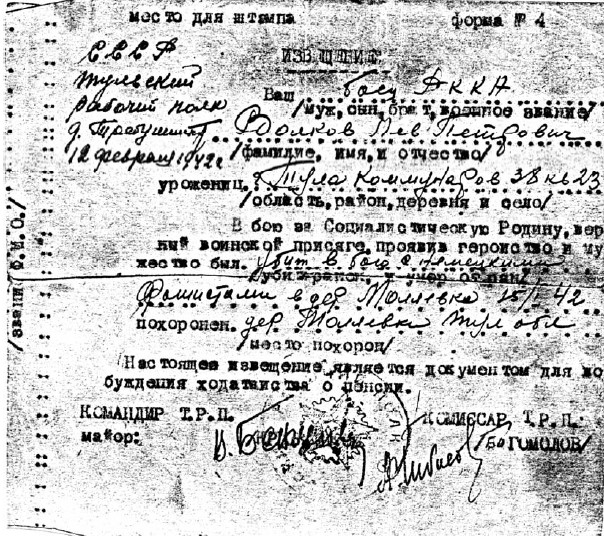 место для штампа
форма № 4
СССР
Тульский
рабочий полк
12 февраля 1942г
ИЗВЕЩЕНИЕ
Ваш боец РККА
/муж, сын, брат, военное звание/
Волков Лев Петрович
/фамилие, имя, и отчество/
урожениц. г. Тула Коммунаров 38 кв 23
/область, район, деревня и село/
В бою за Социалистическую Родину, вер
ный воинской присяге, проявив героиство и му
жество был. убит в бою с немецкими
/убит, ранен, и умер от ран/
фашистами в дер 15/I 42
похоронен. дер Тул обл
/место похорон/
Настоящее извещение является документом для во
буждения ходатаиства о пенсии.
КОМАНДИР Т.Р.П.
майор:
КОМИССАР Т.Р.П.
/БОГОМОЛОВ/
/звание Ф.И.О./